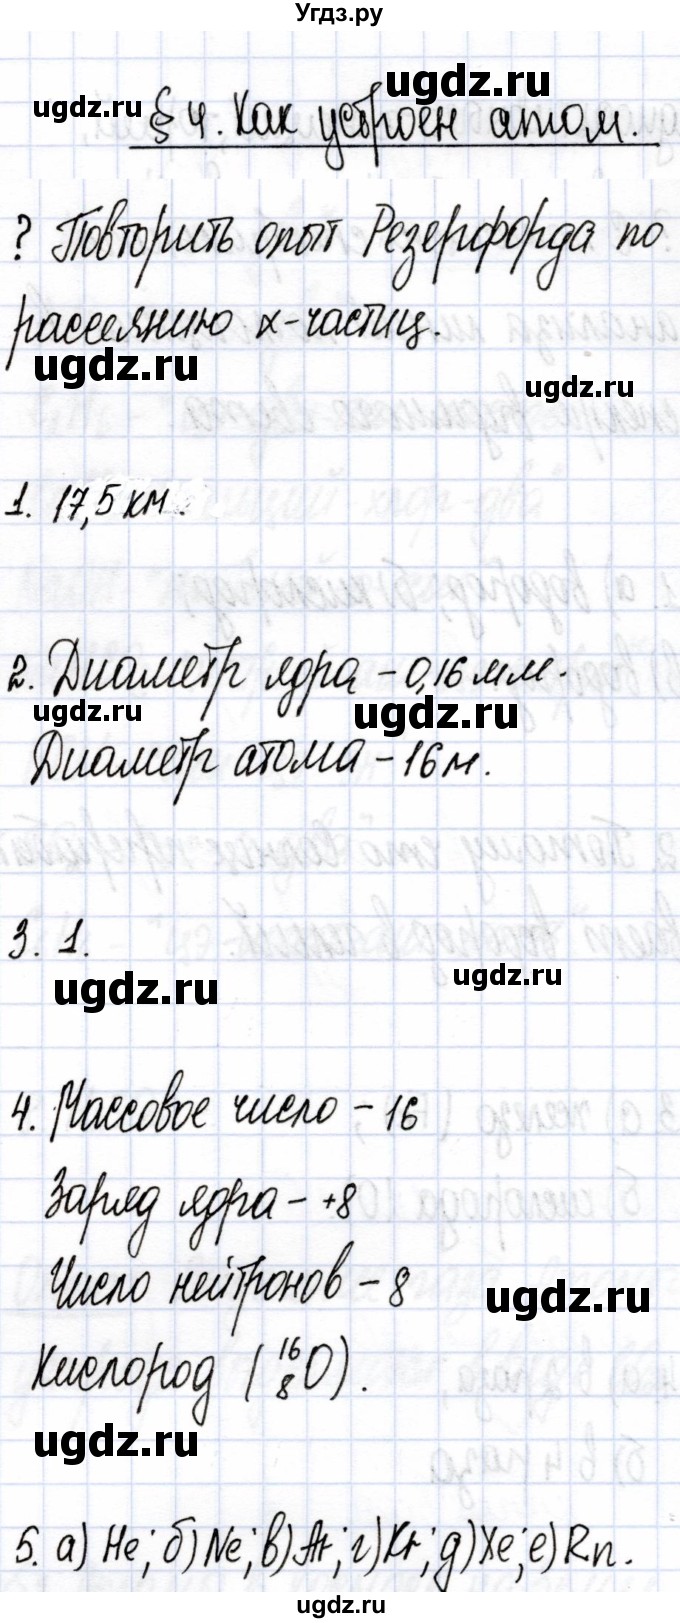 Угдз.ру
ugdz.ru
ugdz.ru § 4. Как устроен атом.
? Повторить опыт Резерфорда по
рассеянию α-частиц.
ugdz.ru
ugdz.ru
1. 17,5 км.
2. Диаметр ядра – 0,16 мм.
ugdz.ru ugdz.ru
Диаметр атома – 16 м.
3. 1.
ugdz.ru ugdz.ru
4. Массовое число – 16
Заряд ядра – +8
Число нейтронов – 8 ugdz.ru
Кислород (¹⁶₈O).
ugdz.ru
5. а) He; б) Ne; в) Ar; г) Kr; д) Xe; е) Rn.
ugdz.ru